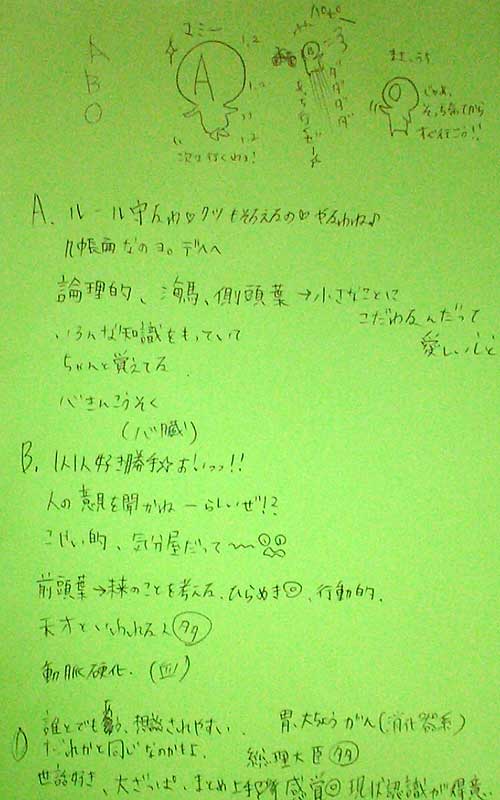 A
B
O
A
次行くわっ!
ダダダダ
B
じゃあ、
そっち行ってから
すぐ行こう!!
A. ルール守るわ♡クツもそろえるの♡やるわね♪
几帳面なのョ。デヘヘ
論理的、海馬、側頭葉→小さなことに
こだわるんだって
愛しい心ど
いろんな知識をもっていて
ちゃんと覚えてる.
心きんこうそく
(心臓)
B. 好き勝手☆おいっっ!!
人の意見を聞かねーらしいぜ!?
的、気分屋だって〜〜
前頭葉→未来のことを考える、ひらめき◎、行動的.
天才といわれる人 タタ
動脈硬化. (血)
O
誰とでも 、想 されやすい.
胃、大ちょうがん(消化器系)
だれかと同じなのかよ.
総理大臣 タタ
世話好き、大ざっぱ、まとめ上手 感覚◎現状認識が得意.